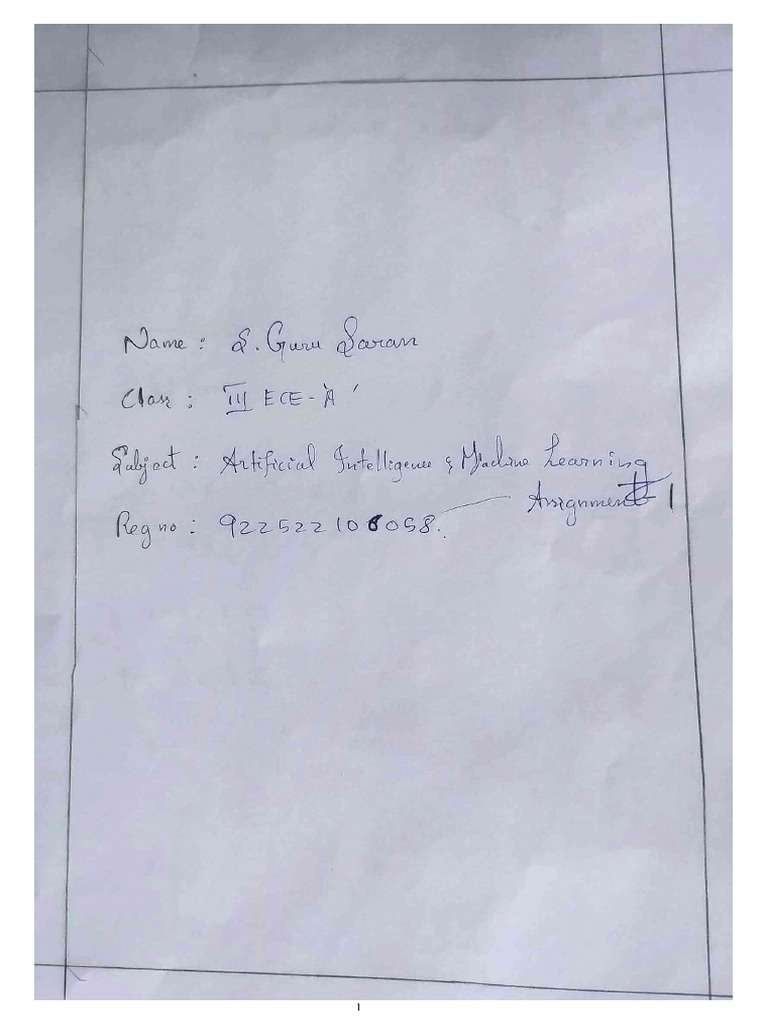 Name : S. Guru Saran
Class : III ECE - 'A'
Subject : Artificial Intelligence & Machine Learning
Assignment 1
Reg no : 922522106058.
1